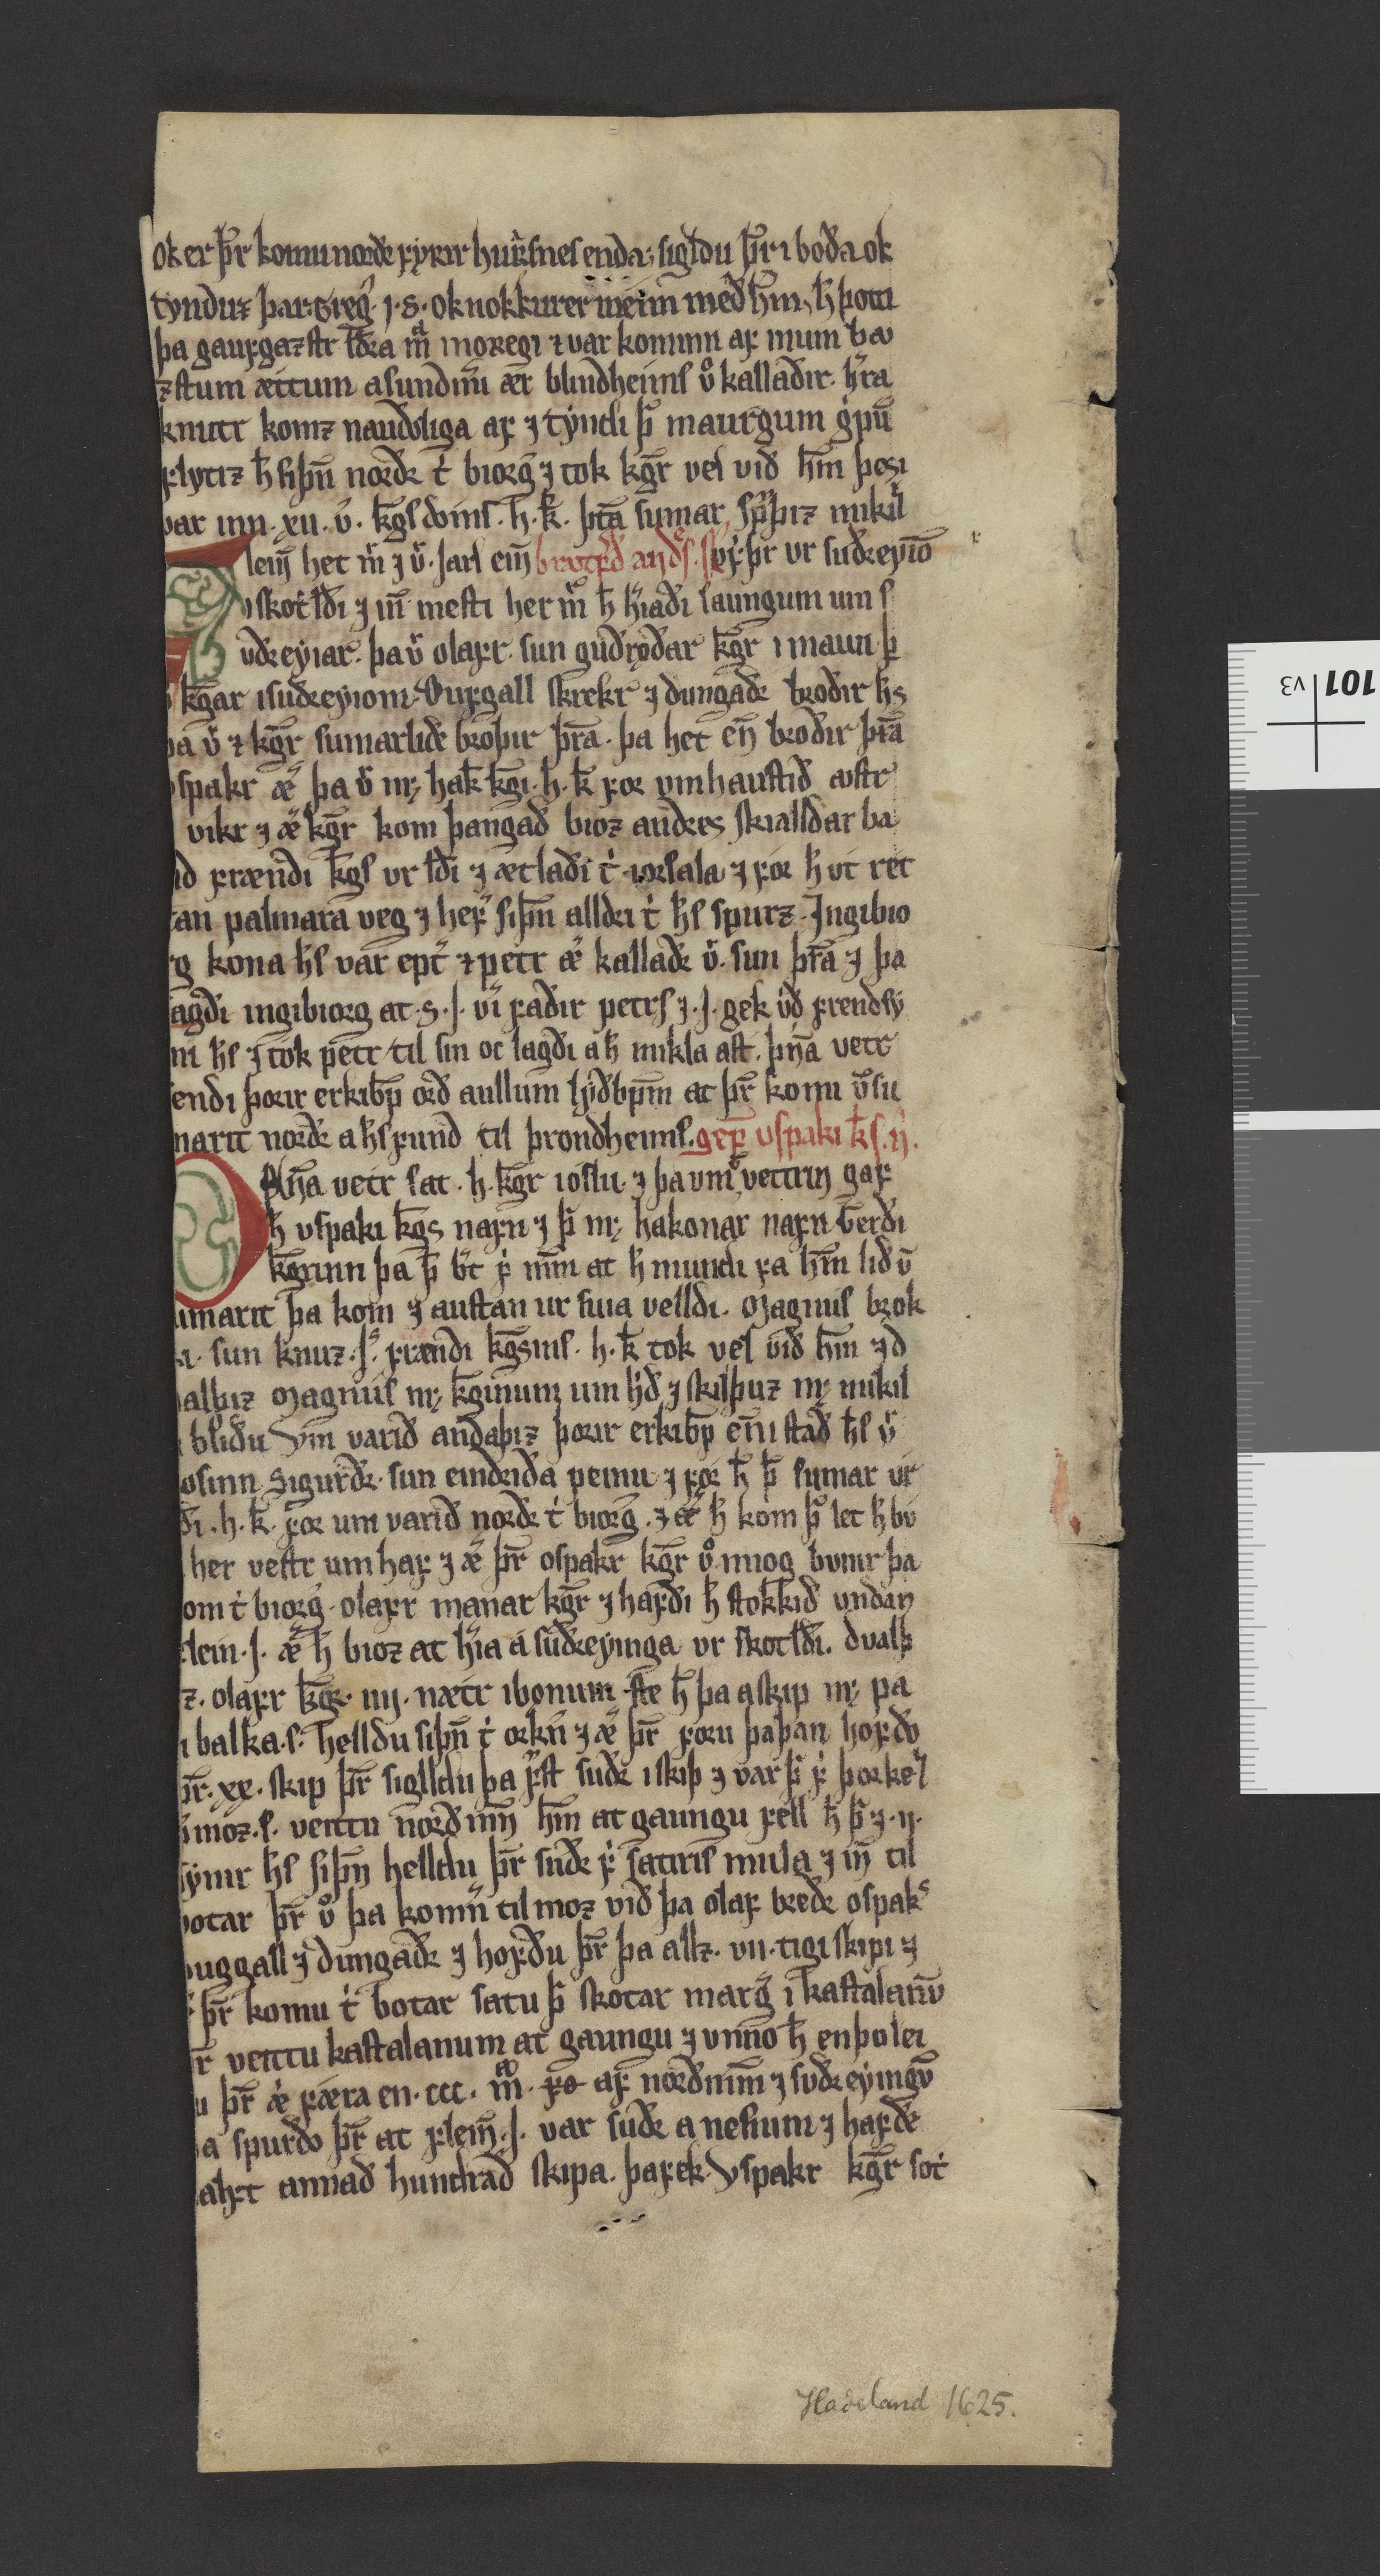 ok er þr̄ komu norðr fyrir hu snes enda, sigldu þr̄ i boða ok
tynduz þar. Greg. J. s. ok nokkurer menn með hm̄. h̄ þotti
þa gaufgaztr lðra m̄ i noregi ⁊ var kominn af
ztum ættum a sundm̄i ær blindheims kallaðir. hra
knutr komz nauðuliga af ⁊ tyndi þ maurgum gpū
flytiz h̄ siþn̄ norðr t biorg ⁊ tok kgr̄ vel við hm̄ þesi
var inn. xii. v. kgs doms. h. k̄. þta sumar
lein het m̄ ⁊ v. jarl ein vr suðreyiō
skotlði ⁊ in mesti her m̄ h̄ hiaði laungum um s
vðreyiar. þa v olafr. sun guðrøðar kgr̄ i maun þ
kgar i suðreyiom Dufgall skrekr ⁊ dungaðr broðir h̄s
þa v ⁊ kgr̄ sumarliðr broþir þra. þa het en̄ broðir þra
vspakr æ þa v m; hak kgi. h. k̄ for vm haustið austr
vikr ⁊ æ kgr̄ kom þangað bioz anders skialldar ba
nd frændi kgs vr lði ⁊ ætlaði t iorsala ⁊ for h̄ vt ret
tan palmara veg ⁊ hef siþn̄ alldri t h̄s spurz. Jngibio
rg kona h̄s var ept ⁊ petr æ kallaðr v. sun þra ⁊ þa
sagði ingibiorg at. S. J. vi faðir petrs ⁊. J. gek við frendsy
ni h̄s ⁊ tok petr til sin oc lagði a h̄ mikla ast. þna vetr
sendi þorir erkibp̄ orð aullum lyðbpm̄ at þr̄ komi v su
marit norðr a h̄s fund til þrondheims. gef vspaki ks. n.
Þna vetr sat. h. kgr̄ i oslu. ⁊ þa vm vettrin gaf
h̄ vspaki kgs nafn ⁊ þ m; hakonar nafn Gerði
kgrinn þa þ b't f mm̄ at h̄ mundi fa hm̄ lið v
umarit þa kom ⁊ austan ur suia velldi. Magnus brok
ki. sun knuz. J. frændi kgsins. h. k̄ tok vel við hm̄ ⁊ d
ualþiz Magnus m; kginum um hð ⁊ skilþuz m; mikil
i bliðu Vm varið andaþiz þorir erkibp̄ en̄ i stað h̄s v
osinn Sigurðr. sun eindriða peinu ⁊ for h̄ þ sumar vr
ði. h. k̄. for um varið norðr t biorg. ⁊ æ h̄ kom þ let h̄ bu
her vestr um haf ⁊ æ þr̄ ospakr kgr̄ v miog bunir þa
om t biorg. olafr manar kgr̄ ⁊ hafði h̄ stokkið undan
flein. J. æ h̄ bioz at hia a suðreyinga vr skotlði. dvalþ
z. olafr kgr̄. iiij. nætr i bønum ste h̄ þa a skip m; pa
i balka. s. helldu siþn̄ t orkn ⁊ æ þr̄ foru þaþan hofdv
þr̄. xx. skip þr̄ siglldu þa fst suðr i skiþ ⁊ var þ f þorkel
þmoz. s. veittu norðmn̄ hm̄ at gaungu fell h̄ þ ⁊. ij.
synir h̄s siþn̄ helldu þr̄ suðr f satiris mula ⁊ in til
botar þr̄ v þa komn til moz við þa olaf brøðr ospaks
duggall ⁊ dungaðr ⁊ hofðu þr̄ þa allz. vii. tigi skipi ⁊
þr̄ komu t botar satu þ skotar marg i kastalanv̄
r veittu kastalanum at gaungu ⁊ vnno h̄ en þo lei
u þr̄ æ færa en. ccc. m̄. fo af norðmm̄ ⁊ suðreyingv̄
þa spurðo þr̄ at flein. J. var suðr a nesium ⁊ hafðe
alft annað hundrað skipa. þa fek Vspakr kgr̄ sot
Hadeland 1625.
101
v3